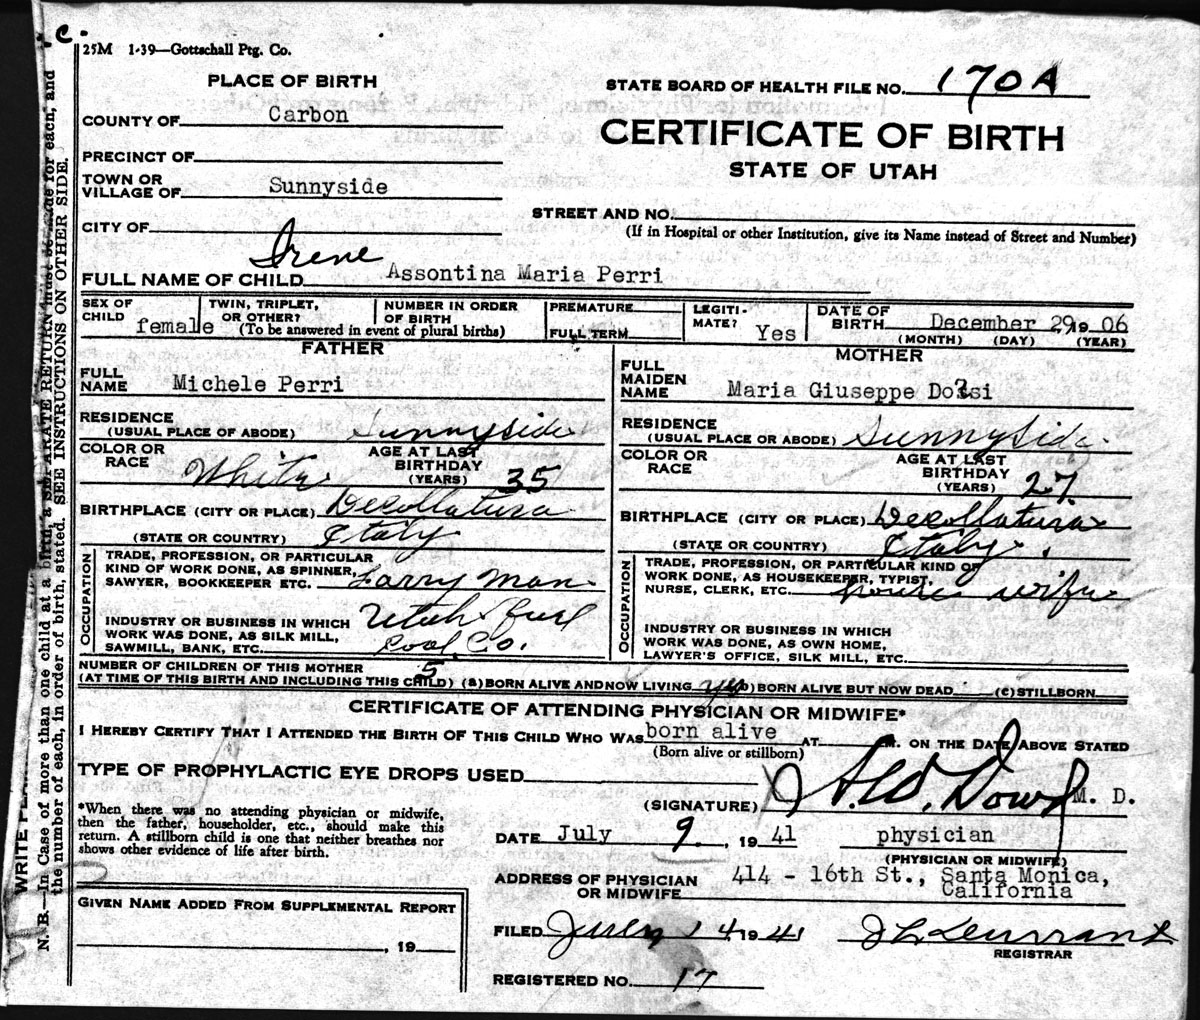 c.
25M 1-39—Gottschall Ptg. Co.
PLACE OF BIRTH
STATE BOARD OF HEALTH FILE NO. 170A
COUNTY OF Carbon
CERTIFICATE OF BIRTH
PRECINCT OF
STATE OF UTAH
TOWN OR
VILLAGE OF Sunnyside
STREET AND NO.
CITY OF
(If in Hospital or other Institution, give its Name instead of Street and Number)
Irene
FULL NAME OF CHILD Assontina Maria Perri
SEX OF CHILD female
TWIN, TRIPLET, OR OTHER?
NUMBER IN ORDER OF BIRTH
(To be answered in event of plural births)
PREMATURE
FULL TERM
LEGITI-MATE? Yes
DATE OF BIRTH December 29 19 06
(MONTH) (DAY) (YEAR)
FATHER
FULL NAME Michele Perri
RESIDENCE (USUAL PLACE OF ABODE) Sunnyside
COLOR OR RACE White
AGE AT LAST BIRTHDAY (YEARS) 35
BIRTHPLACE (CITY OR PLACE) Decollatura
(STATE OR COUNTRY) Italy
OCCUPATION
TRADE, PROFESSION, OR PARTICULAR
KIND OF WORK DONE, AS SPINNER,
SAWYER, BOOKKEEPER ETC. Larry Man
INDUSTRY OR BUSINESS IN WHICH Utah Fuel
WORK WAS DONE, AS SILK MILL,
SAWMILL, BANK, ETC. Coal Co.
MOTHER
FULL MAIDEN NAME Maria Giuseppe
RESIDENCE (USUAL PLACE OR ABODE) Sunnyside
COLOR OR RACE
AGE AT LAST BIRTHDAY (YEARS) 27
BIRTHPLACE (CITY OR PLACE) Decollatura
(STATE OR COUNTRY) Italy.
OCCUPATION
TRADE, PROFESSION, OR PARTICULAR KIND OF
WORK DONE, AS HOUSEKEEPER, TYPIST,
NURSE, CLERK, ETC. house wife
INDUSTRY OR BUSINESS IN WHICH
WORK WAS DONE, AS OWN HOME,
LAWYER'S OFFICE, SILK MILL, ETC.
NUMBER OF CHILDREN OF THIS MOTHER 5
(AT TIME OF THIS BIRTH AND INCLUDING THIS CHILD) (a) BORN ALIVE AND NOW LIVING yes (b) BORN ALIVE BUT NOW DEAD (c) STILLBORN
CERTIFICATE OF ATTENDING PHYSICIAN OR MIDWIFE*
I HEREBY CERTIFY THAT I ATTENDED THE BIRTH OF THIS CHILD WHO WAS born alive AT M. ON THE DATE ABOVE STATED
(Born alive or stillborn)
TYPE OF PROPHYLACTIC EYE DROPS USED
(SIGNATURE) A.W. Dowd M. D.
*When there was no attending physician or midwife,
then the father, householder, etc., should make this
return. A stillborn child is one that neither breathes nor
shows other evidence of life after birth.
DATE July 9, 19 41 physician
(PHYSICIAN OR MIDWIFE)
ADDRESS OF PHYSICIAN OR MIDWIFE 414 - 16th St., Santa Monica,
California
GIVEN NAME ADDED FROM SUPPLEMENTAL REPORT
, 19
FILED July 14 1941
REGISTRAR
REGISTERED NO. 17
N. B.—In Case of more than one child at a birth, a SEPARATE RETURN must be made for each, and
the number of each, in order of birth, stated. SEE INSTRUCTIONS ON OTHER SIDE.